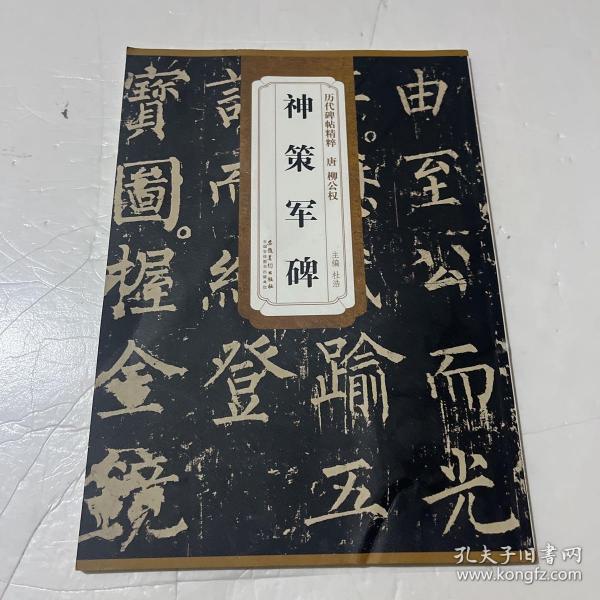 历代碑帖精粹 唐 柳公权
神策军碑
主编 杜浩
安徽美术出版社
由至公而光
踰五
登
寶圖握金鏡
孔夫子旧书网
www.kongfz.com